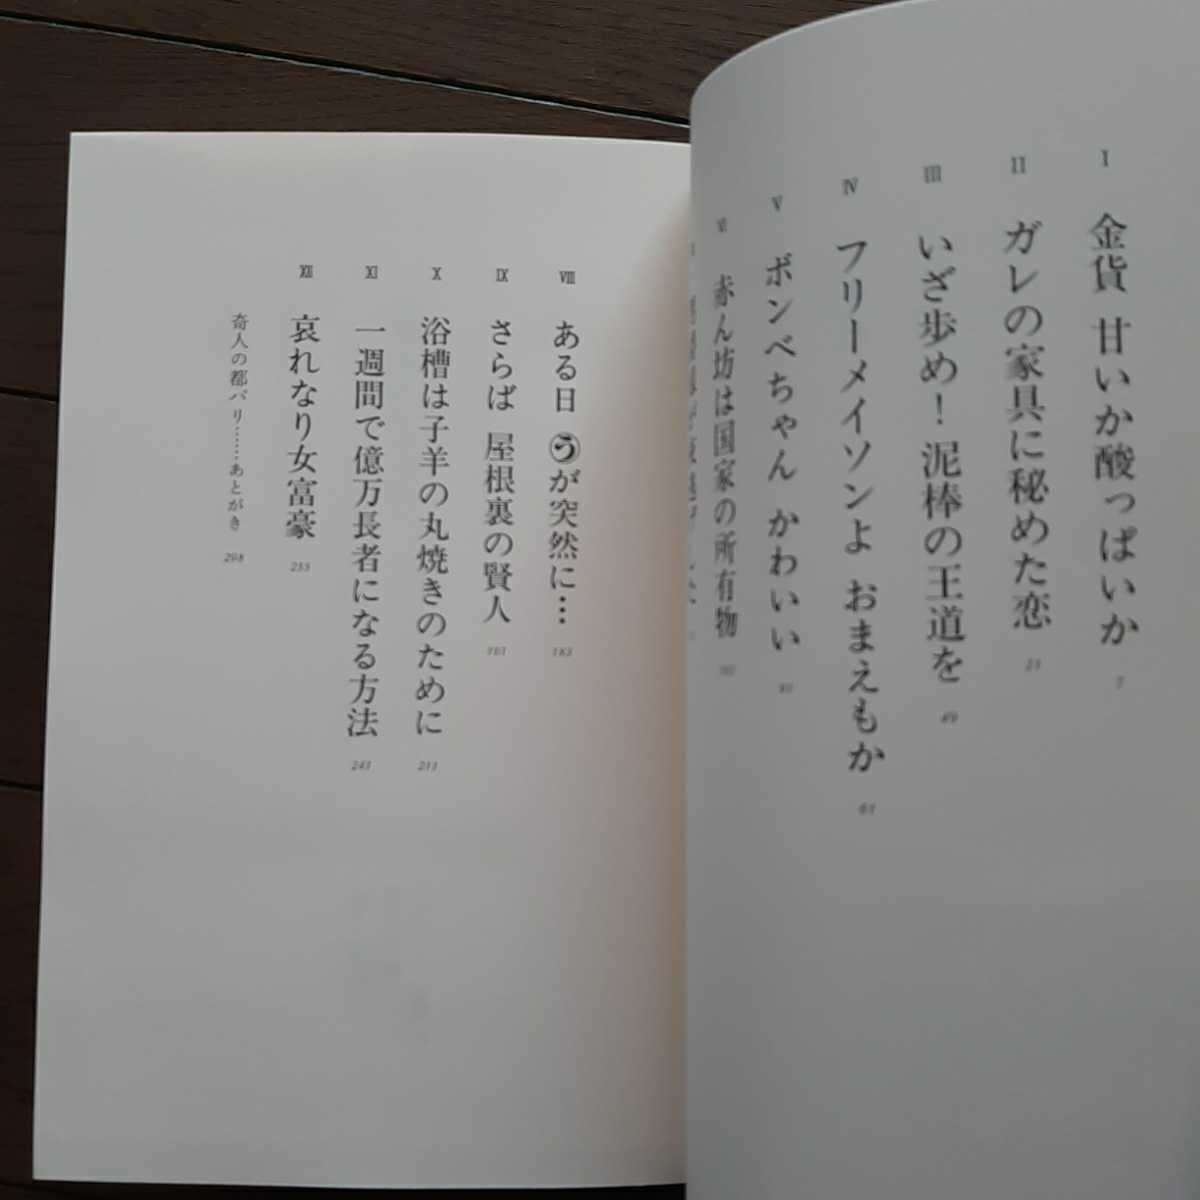 I 金貨 甘いか酸っぱいか 7
II ガレの家具に秘めた恋 25
III いざ歩め！泥棒の王道を 49
IV フリーメイソンよ おまえもか 61
V ボンベちゃん かわいい
VI 赤ん坊は国家の所有物
VIII ある日 うが突然に… 183
IX さらば 屋根裏の賢人 191
X 浴槽は子羊の丸焼きのために 211
XI 一週間で億万長者になる方法 241
XII 哀れなり女富豪 255
奇人の都パリ……あとがき 298